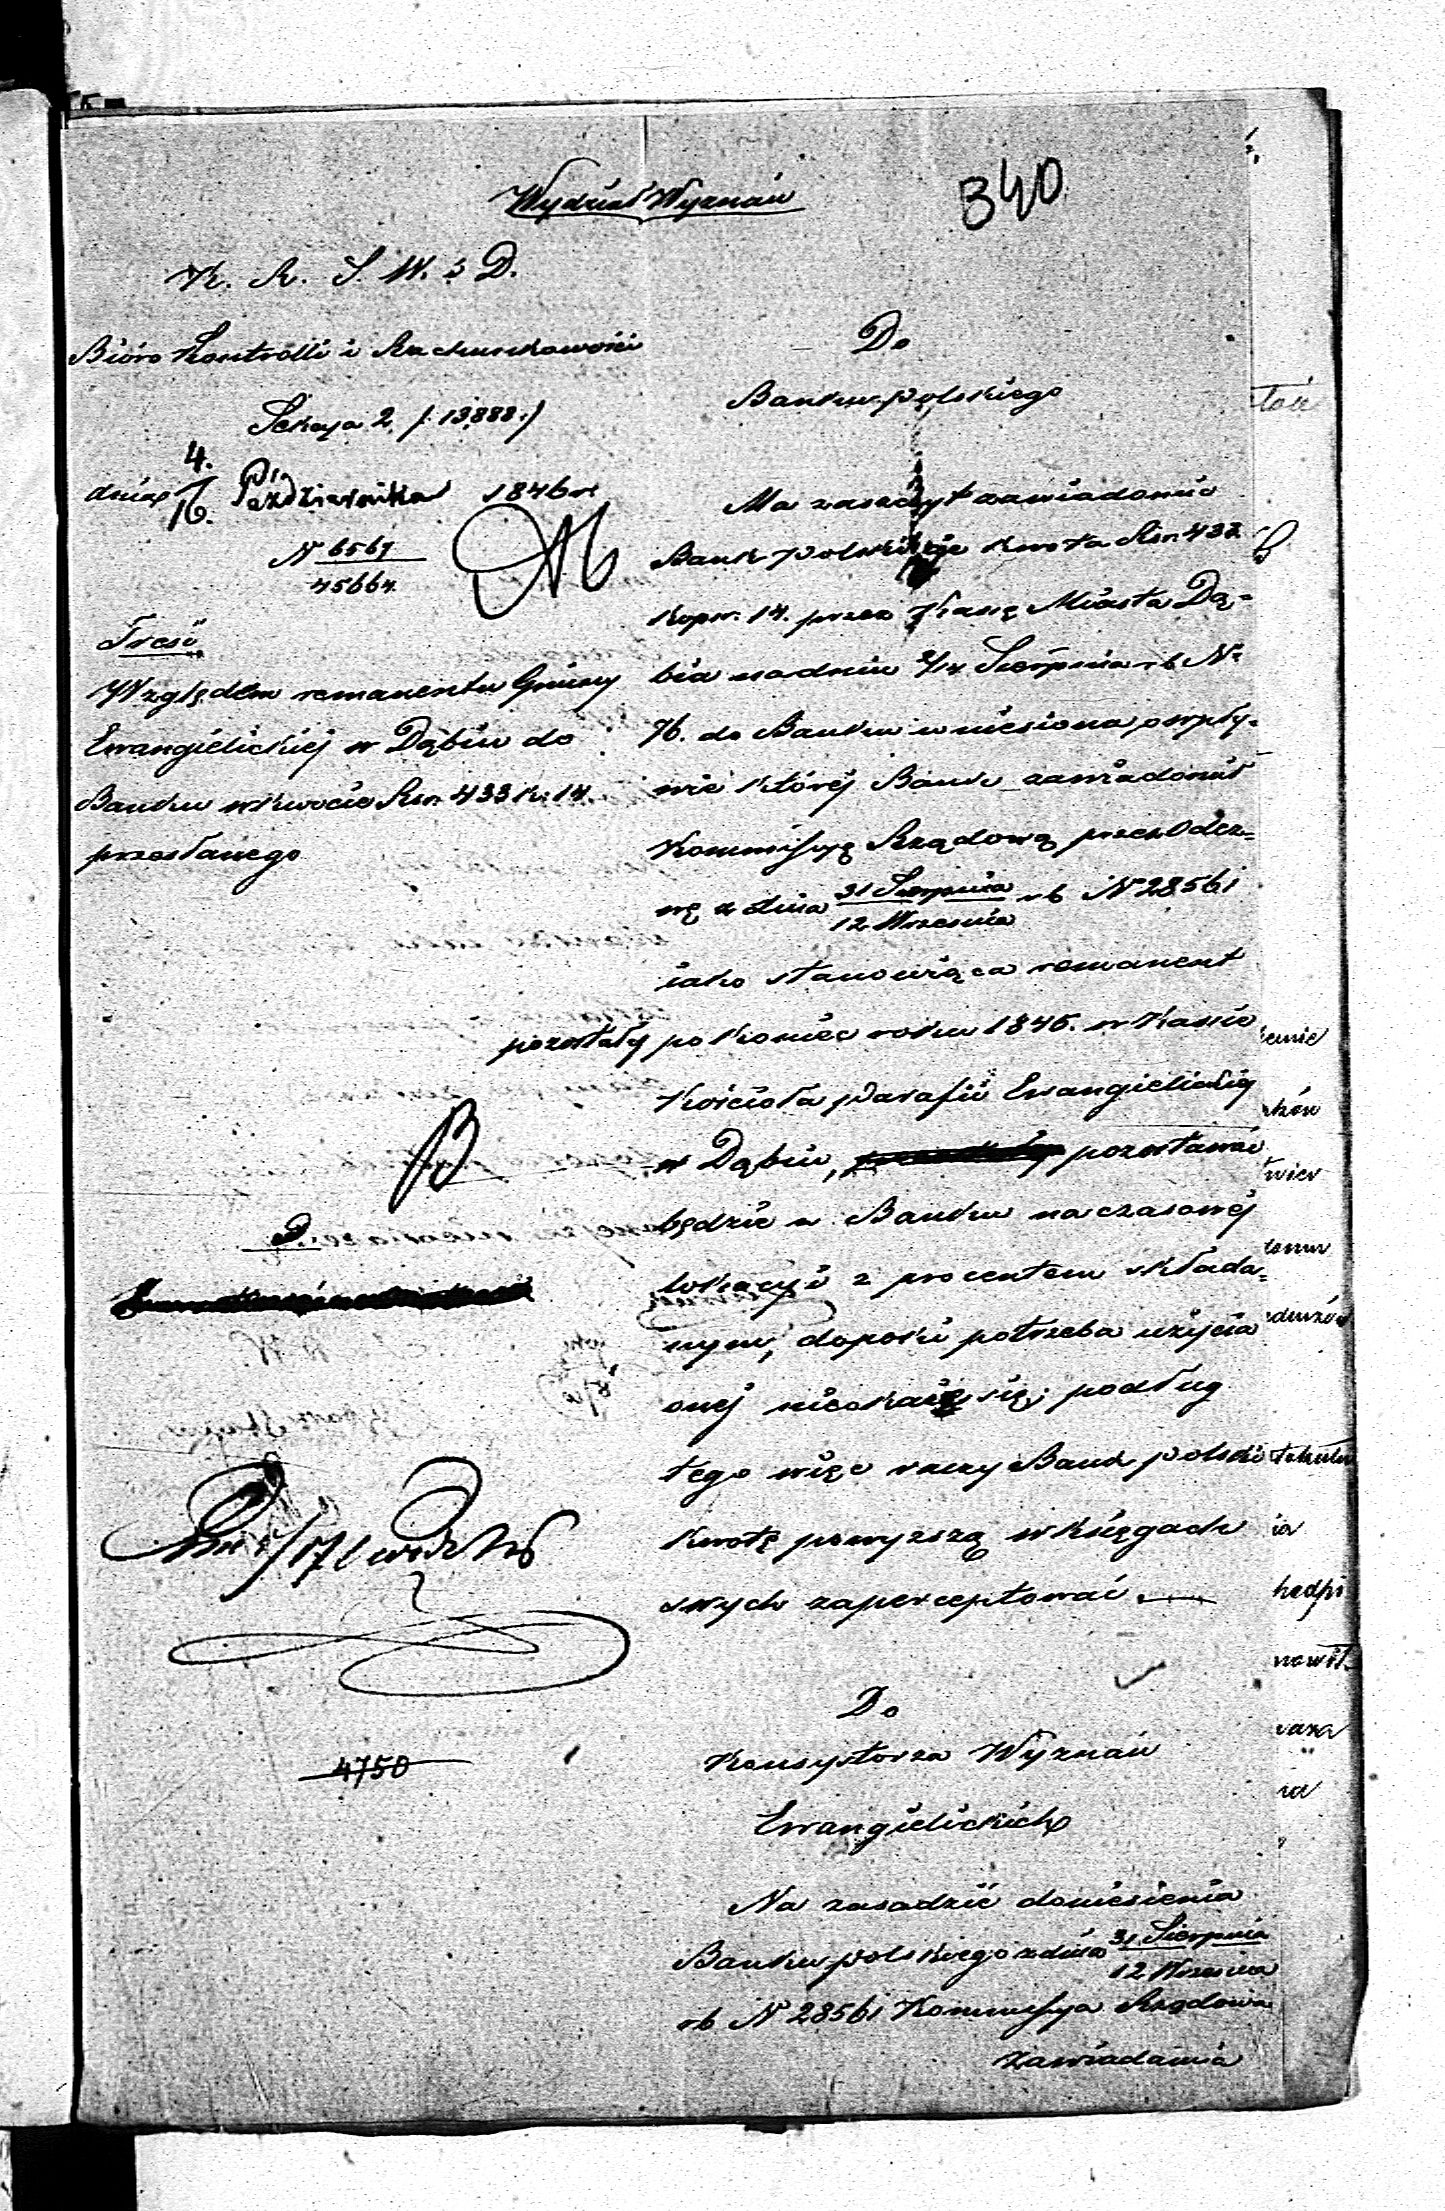 340
Wydział Wyznań
K. R. S. W. i D.
Bióro Kontrolli i Rachunkowości
Sekcya 2. /: 13888 :/
dnia 4/16. Października 1846 r
N 6567/45664
Treść
Względem remanentu Gminy
Ewangielickiéj w Dąbiu do
Banku w kwocie Rsr. 433 k. 14
przesłanego
4750
Do
Banku polskiego
Ma zaszczyt zawiadomić
Bank Polski że kwota Rsr. 433
kopr. 14. przez Kassę Miasta Dą-
bia na dniu 2/14 Sierpnia r b Nr
76. do Banku wniesiona, o wpły-
wie któréj Bank zawiadomił
Kommissyę Rządową przez Odez-
wę z dnia 31 Sierpnia/12 Września r b N 28561
iako stanowiąca remanent
pozostały po koniec roku 1845. w Kassie
Kościoła Parafii Ewangielickiéj
w Dąbiu, pozostawać
będzie w Banku na czasowéj
lokacyi z procentem składa-
nym, dopóki potrzeba użycia
onéj nieokaże się; podług
tego więc raczy Bank polski
kwotę powyższą w księgach
swych zaperceptować
Do
Konsystorza Wyznań
Ewangielickich
Na zasadzie doniesienia
Banku polskiego z dnia 31 Sierpnia/12 Września
r b N 28561 Kommissya Rządowa
zawiadamia